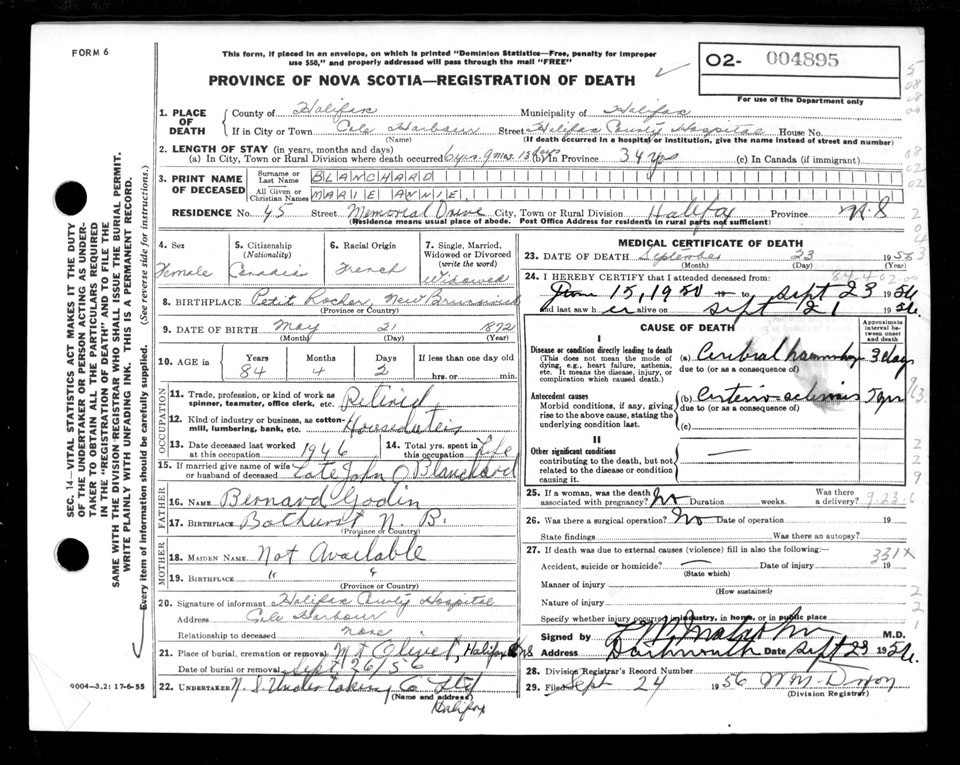 FORM 6
This form, if placed in an envelope, on which is printed "Dominion Statistics—Free, penalty for improper
use $50," and properly addressed will pass through the mail "FREE"
PROVINCE OF NOVA SCOTIA—REGISTRATION OF DEATH
02- 004895
For use of the Department only
SEC. 14—VITAL STATISTICS ACT MAKES IT THE DUTY
OF THE UNDERTAKER OR PERSON ACTING AS UNDER-
TAKER TO OBTAIN ALL THE PARTICULARS REQUIRED
IN THE "REGISTRATION OF DEATH" AND TO FILE THE
SAME WITH THE DIVISION REGISTRAR WHO SHALL ISSUE THE BURIAL PERMIT.
WRITE PLAINLY WITH UNFADING INK. THIS IS A PERMANENT RECORD.
Every item of information should be carefully supplied. (See reverse side for instructions.)
1. PLACE OF DEATH County of Halifax Municipality of Halifax
If in City or Town Cole Harbour Street Halifax County Hospital House No.
(Name) (If death occurred in a hospital or institution, give the name instead of street and number)
2. LENGTH OF STAY (in years, months and days)
(a) In City, Town or Rural Division where death occurred 6 yrs. 9 mos. 13 days (b) In Province 34 yrs (c) In Canada (if immigrant)
3. PRINT NAME OF DECEASED Surname or Last Name BLANCHARD
All Given or Christian Names MARIE ANNIE
RESIDENCE No. 45 Street Memorial Drive City, Town or Rural Division Halifax Province N.S
(Residence means usual place of abode. Post Office Address for residents in rural parts not sufficient)
4. Sex Female
5. Citizenship (Nationality) Canadian
6. Racial Origin French
7. Single, Married, Widowed or Divorced (write the word) Widowed
8. BIRTHPLACE Petit Rocher, New Brunswick
(Province or Country)
9. DATE OF BIRTH May 21 1872
(Month) (Day) (Year)
10. AGE IN Years 84 Months 4 Days 2 If less than one day old hrs. or min.
OCCUPATION
11. Trade, profession, or kind of work as spinner, teamster, office clerk, etc. Retired
12. Kind of industry or business, as cotton-mill, lumbering, bank, etc. Houseduties
13. Date deceased last worked at this occupation 1946 14. Total yrs. spent in this occupation Life
15. If married give name of wife or husband of deceased Late John O Blanchard
FATHER
16. NAME Bernard Godin
17. BIRTHPLACE Bathurst N. B.
(Province or Country)
MOTHER
18. MAIDEN NAME Not Available
19. BIRTHPLACE " "
(Province or Country)
20. Signature of informant Halifax County Hospital
Address Cole Harbour
Relationship to deceased none
21. Place of burial, cremation or removal Mt Olivet, Halifax NS
Date of burial or removal Sept 26/56
22. UNDERTAKER N. S Undertaking Co Ltd
(Name and address)
Halifax
9004-3.2: 17-6-55
MEDICAL CERTIFICATE OF DEATH
23. DATE OF DEATH September 23 1956
(Month) (Day) (Year)
24. I HEREBY CERTIFY that I attended deceased from:
15, 1950 to Sept 23 1956
and last saw her alive on Sept 21 1956
CAUSE OF DEATH
Approximate interval between onset and death
I
Disease or condition directly leading to death
(This does not mean the mode of dying, e.g., heart failure, asthenia, etc. It means the disease, injury, or complication which caused death.)
(a) Cerebral 3 days
due to (or as a consequence of)
Antecedent causes
Morbid conditions, if any, giving rise to the above cause, stating the underlying condition last.
(b) 5 yrs
due to (or as a consequence of)
(c)
II
Other significant conditions
contributing to the death, but not related to the disease or condition causing it.
25. If a woman, was the death associated with pregnancy? No Duration weeks. Was there a delivery?
26. Was there a surgical operation? No Date of operation 19
State findings Was there an autopsy?
27. If death was due to external causes (violence) fill in also the following:—
Accident, suicide or homicide? Date of injury 19
(State which)
331X
Manner of injury
(How sustained)
Nature of injury
Specify whether injury occurred in industry, in home, or in public place
Signed by M.D.
Address Dartmouth Date Sept 23 1956
28. Division Registrar's Record Number
29. Filed Sept 24 1956 Wm Dixon
(Division Registrar)